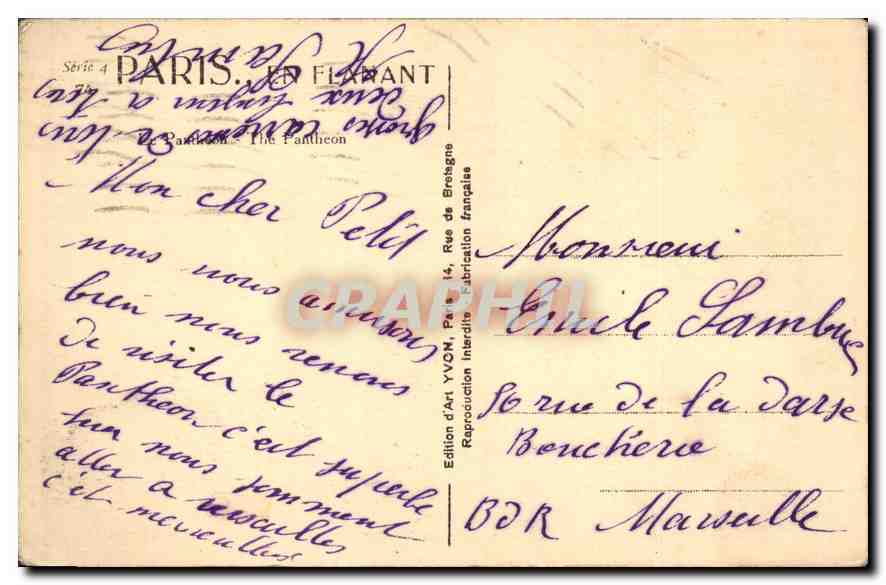 Série 4
PARIS., EN FLANANT
74
Le Pantheon - The Pantheon
Mon cher Petit
nous nous amusons
bien nous venons
de visiter le
Pantheon c'est superbe
hier nous somment
aller a versailles
c'et merveilleux
grosses caresses à tous
deux
Famille
Edition d'Art YVON, Paris, 14, Rue de Bretagne
Reproduction Interdite Fabrication française
Monsieur
Emile Lambue
56 rue de la darse
Boucherie
BDR Marseille
CPAPHIL